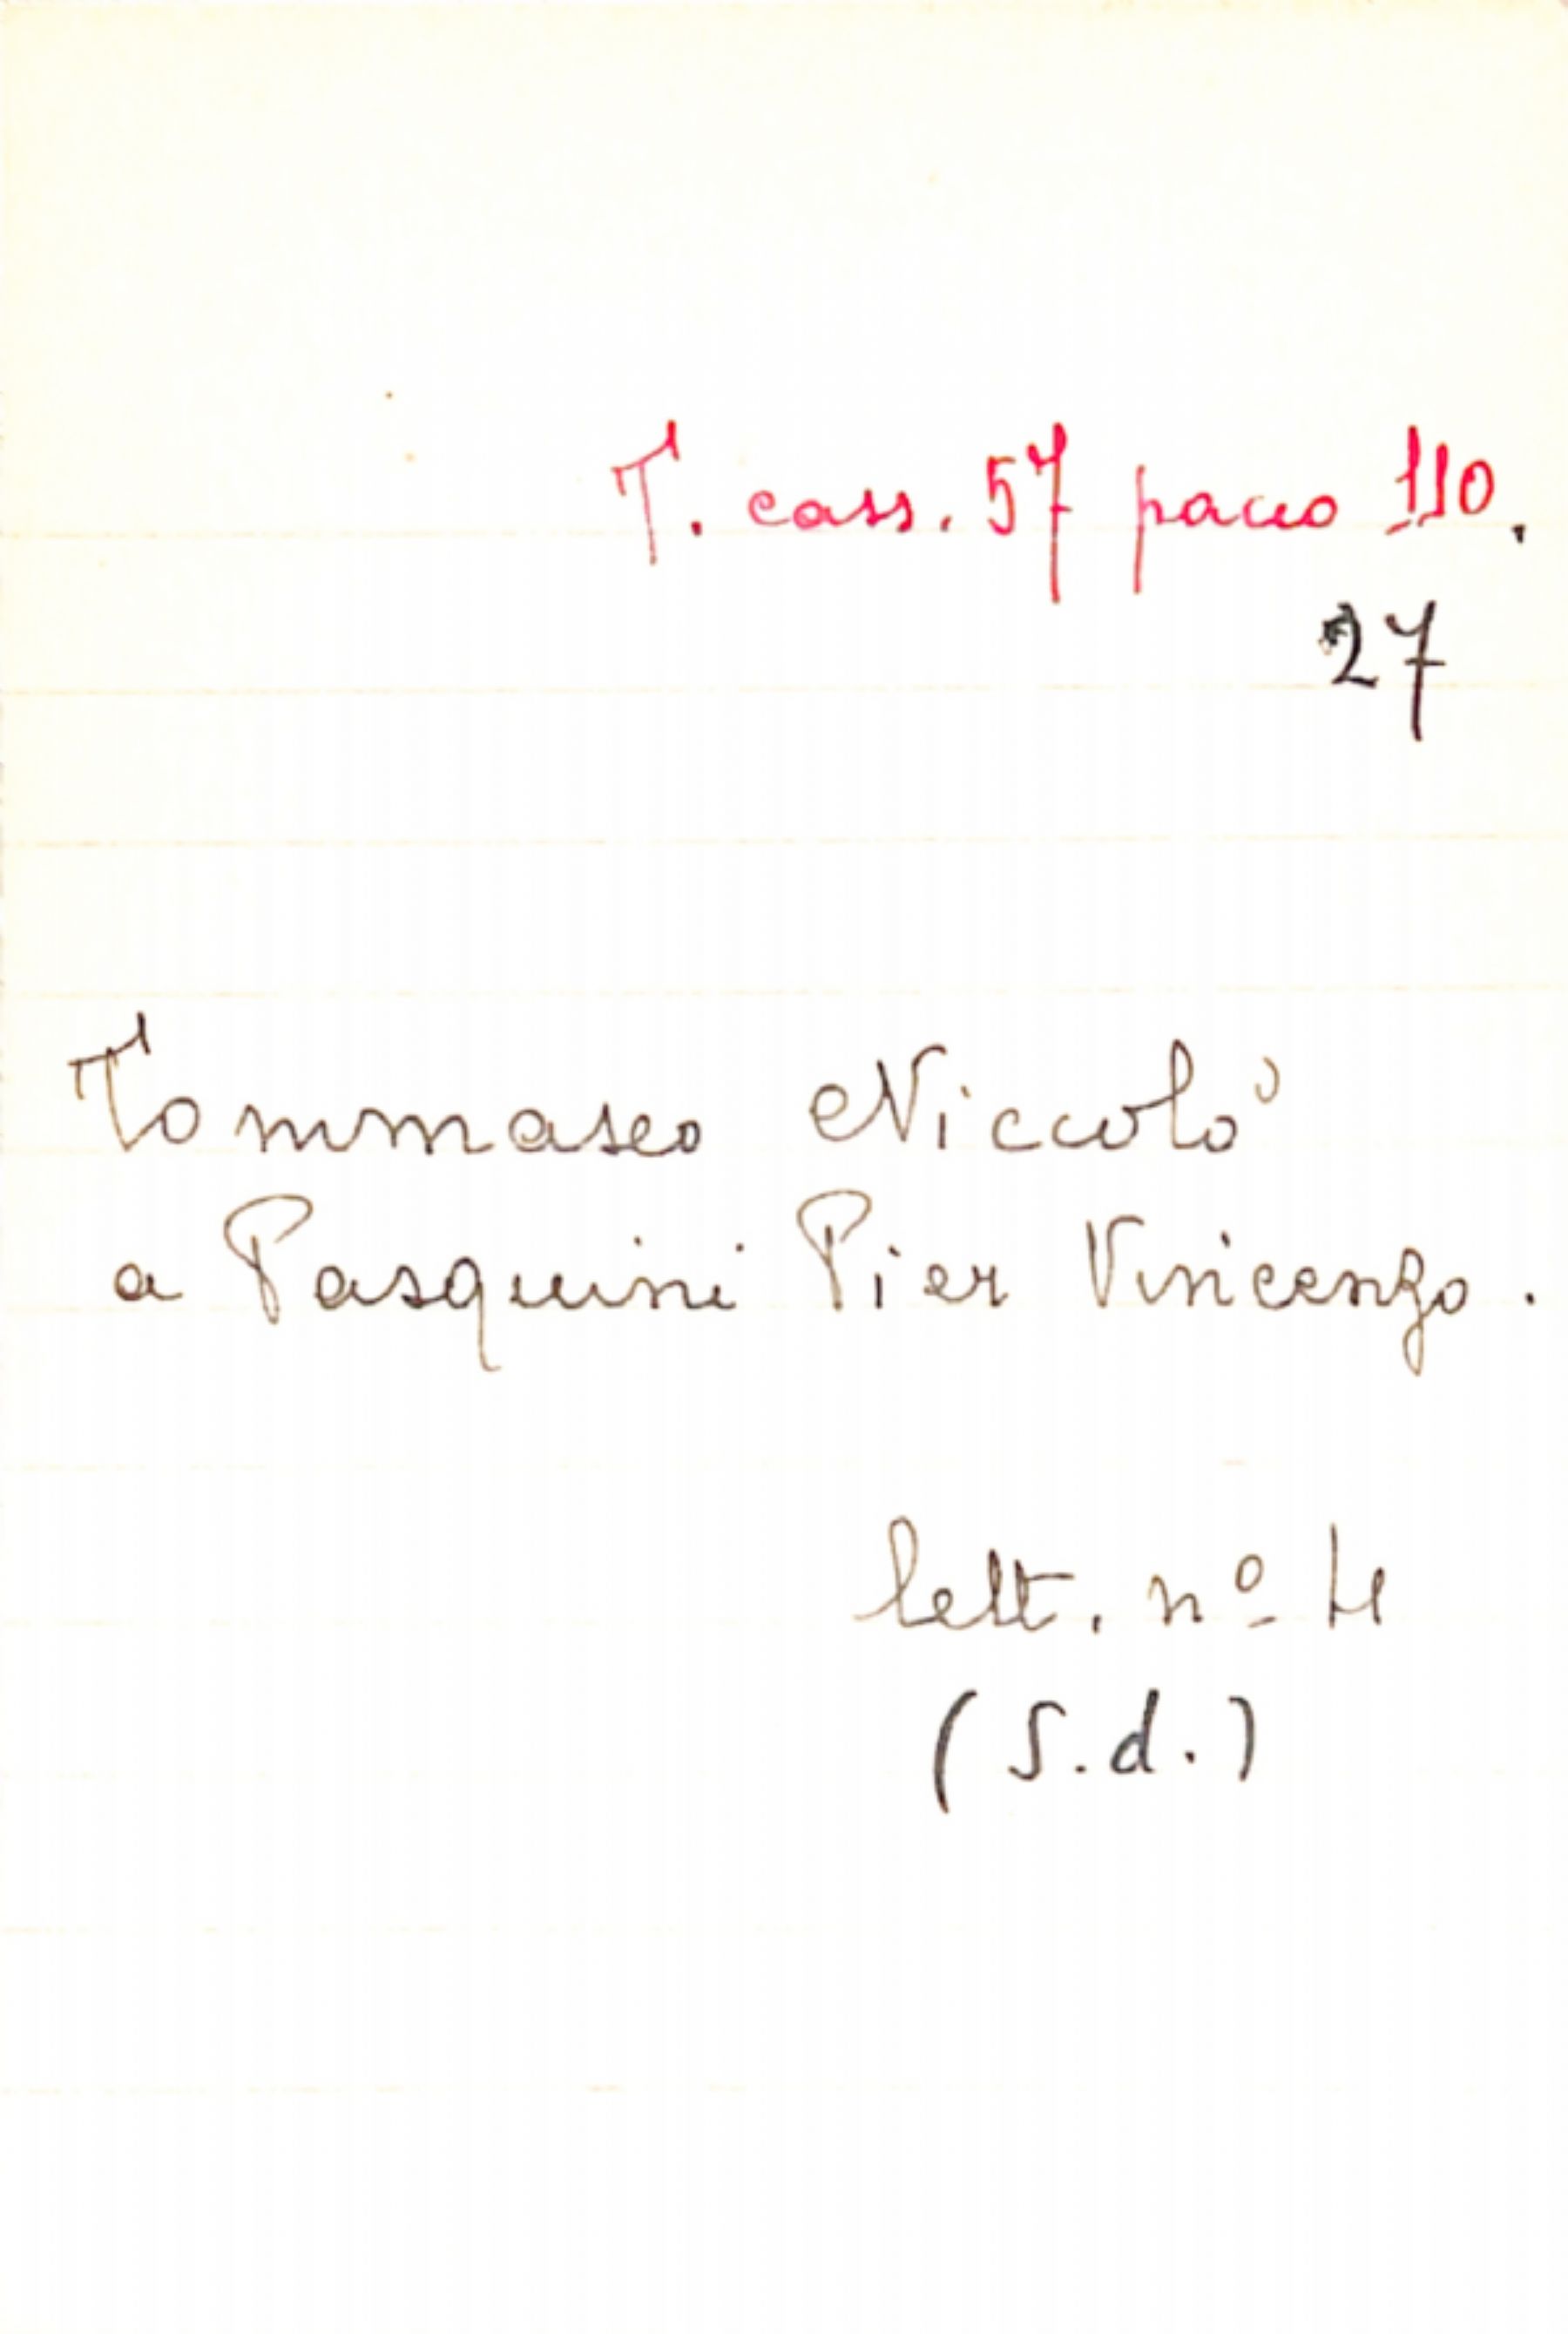 T. cass. 57 pacco 110.
27
Tommaseo Niccolò
a Pasquini Pier Vincenzo.
lett. nº 4
(S.d.)